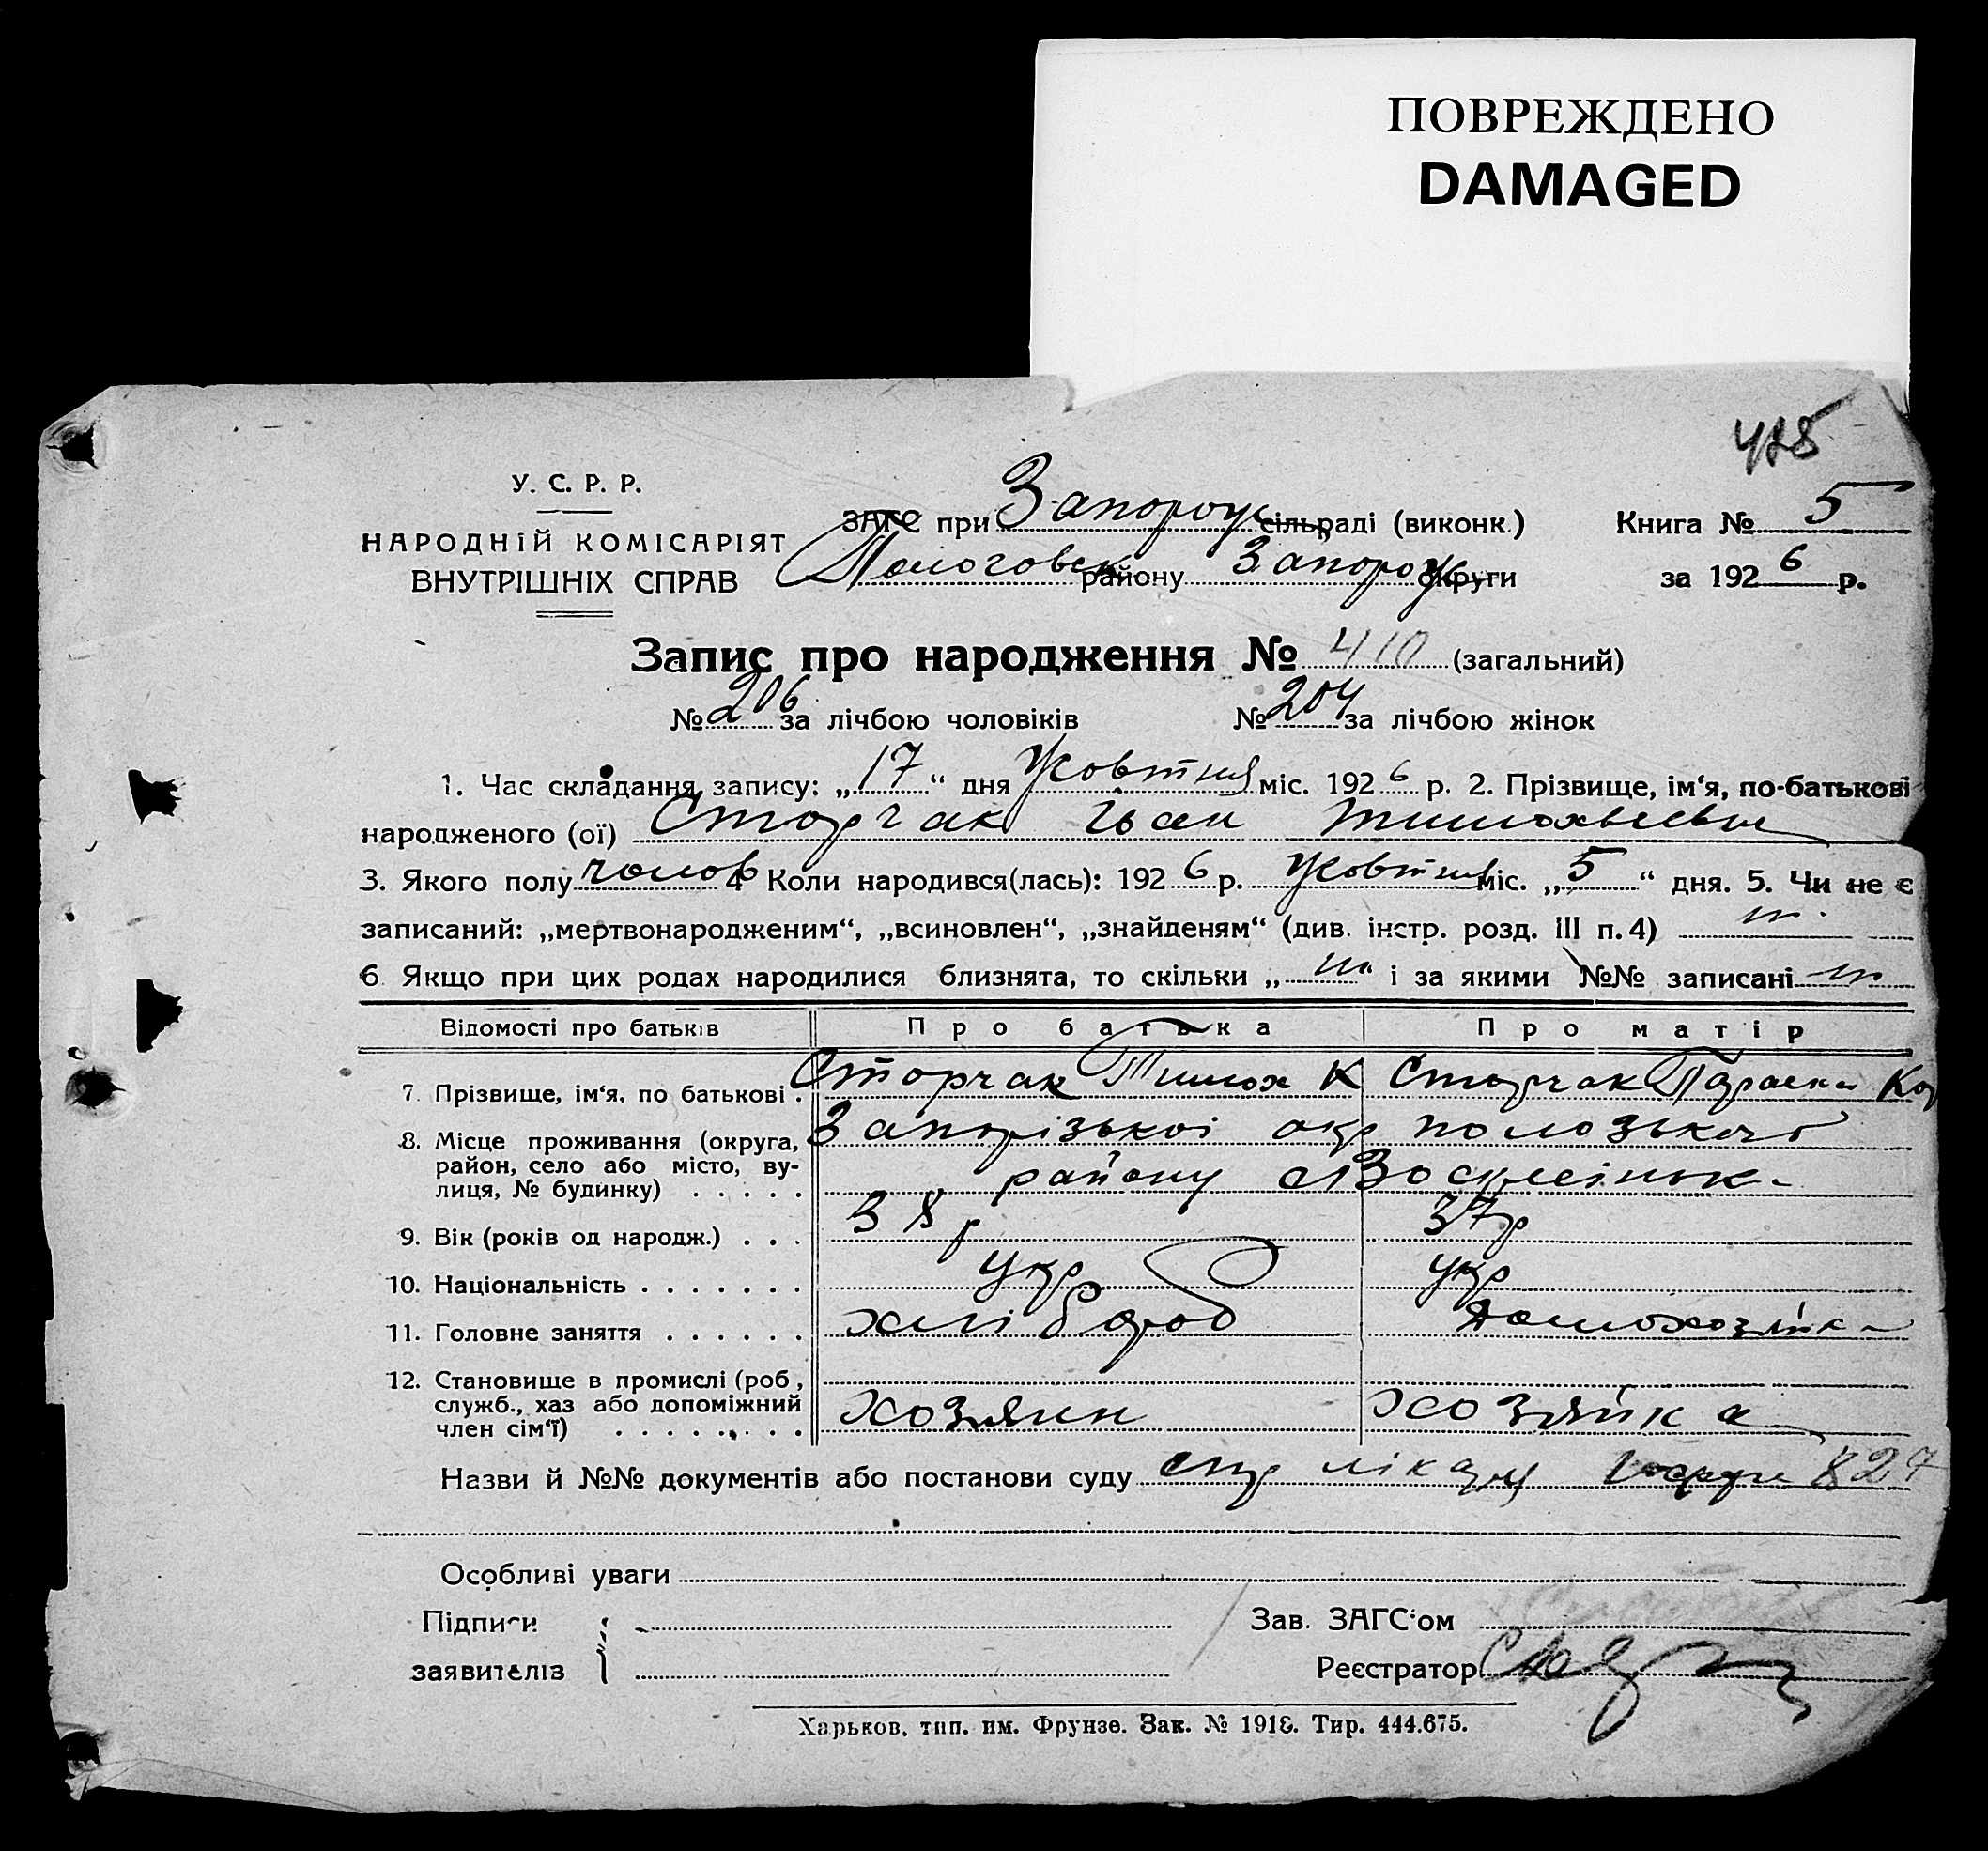 ПОВРЕЖДЕНО
DAMAGED
У. С. Р. Р.
НАРОДНІЙ КОМІСАРІЯТ
ВНУТРІШНІХ СПРАВ
ЗАГС при Запорож сільраді (виконк.) Книга № 5
Пологовск району Запорож округи за 1926 р.
Запис про народження № 410 (загальний)
№ 206 за лічбою чоловіків № 204 за лічбою жінок
1. Час складання запису: „17“ дня Жовтня міс. 1926 р. 2. Прізвище, ім‘я, по-батькові
народженого (ої) Сторчак Іван Тимохвієвич
3. Якого полу чолов 4 Коли народився(лась): 1926 р. Жовтня міс. „5“ дня. 5. Чи не є
записаний: „мертвонародженим“, „всиновлен“, „знайденям“ (див. інстр. розд. III п. 4)
6. Якщо при цих родах народилися близнята, то скільки „ “ і за якими №№ записані
Відомості про батьків Про батька Про матір
7. Прізвище, ім‘я, по батькові. Сторчак Тимох К Сторчак Параска
8. Місце проживання (округа, Запорізькоі окр пологзького
район, село або місто, ву- району
лиця, № будинку) . . . . .
9. Вік (років од народж.) . . . 38 р 37 р
10. Національність . . . . . . . укр укр
11. Головне заняття . . . . . . хлібороб домохозяйка
12. Становище в промислі (роб.,
служб., хаз або допоміжний хозяин хозяйка
член сім‘ї) . . . . . . . .
Назви й №№ документів або постанови суду спр лікаря 827
Особливі уваги
Підписи Зав. ЗАГС‘ом
заявителів Реєстратор
Харьков, тип. им. Фрунзе. Зак. № 1918. Тир. 444.675.